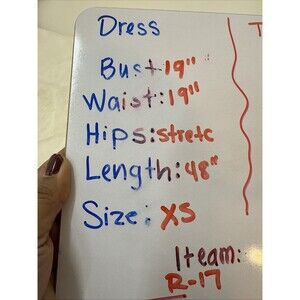 Dress
Bust 19"
Waist: 19"
Hips: stretc
Length: 48"
Size: XS
Iteam:
R-17
T